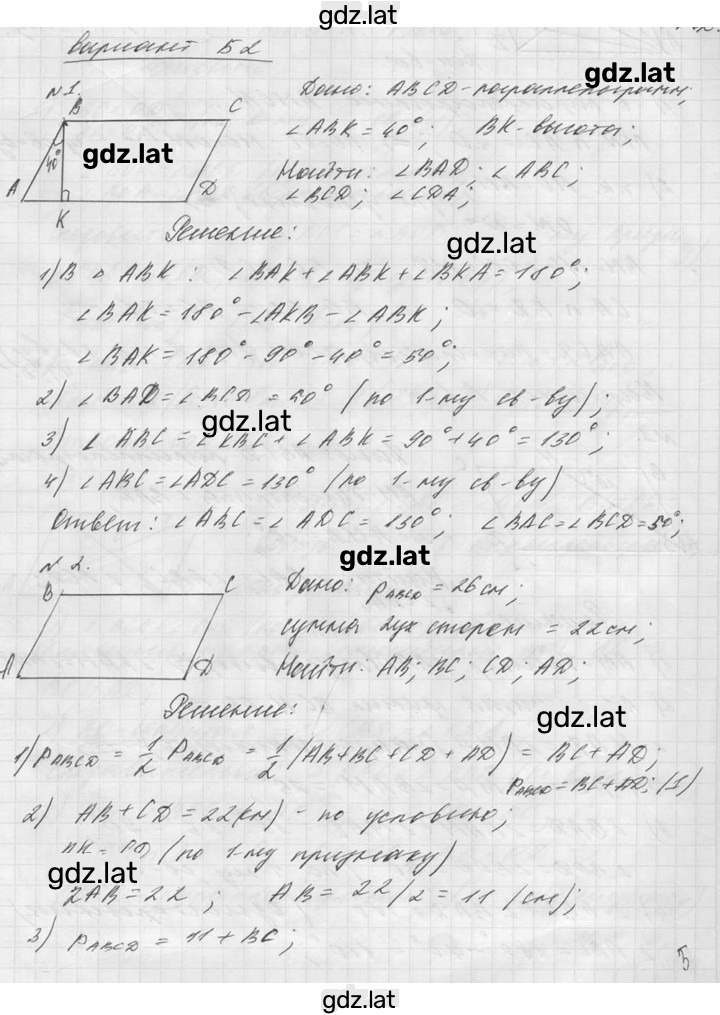 gdz.lat
вариант Б2
gdz.lat
№1.
Дано: ABCD-параллелограмм;
B C
∠ABK=40°; BK-высота;
gdz.lat
40°
Найти: ∠BAD; ∠ABC;
A D
∠BCD; ∠CDA;
K
Решение:
gdz.lat
1) В △ ABK: ∠BAK+∠ABK+∠BKA=180°;
∠BAK=180°-∠AKB-∠ABK;
∠BAK=180°-90°-40°=50°;
2) ∠BAD=∠BCD=50° (по 1-му св-ву);
gdz.lat
3) ∠ABC=∠KBC+∠ABK=90°+40°=130°;
4) ∠ABC=∠ADC=130° (по 1-му св-ву)
Ответ: ∠ABC=∠ADC=130°; ∠BAC=∠BCD=50°;
gdz.lat
№2.
B C
Дано: PABCD=26см;
сумма 2ух сторон = 22см;
A D
Найти: AB; BC; CD; AD;
Решение:
gdz.lat
1) PABCD = 1/2 PABCD = 1/2 (AB+BC+CD+AD) = BC+AD;
PABCD=BC+AD; (1)
2) AB+CD=22(см) - по условию;
(по 1-му признаку)
gdz.lat
2AB=22; AB=22/2=11 (см);
3) PABCD = 11+BC;
5
gdz.lat